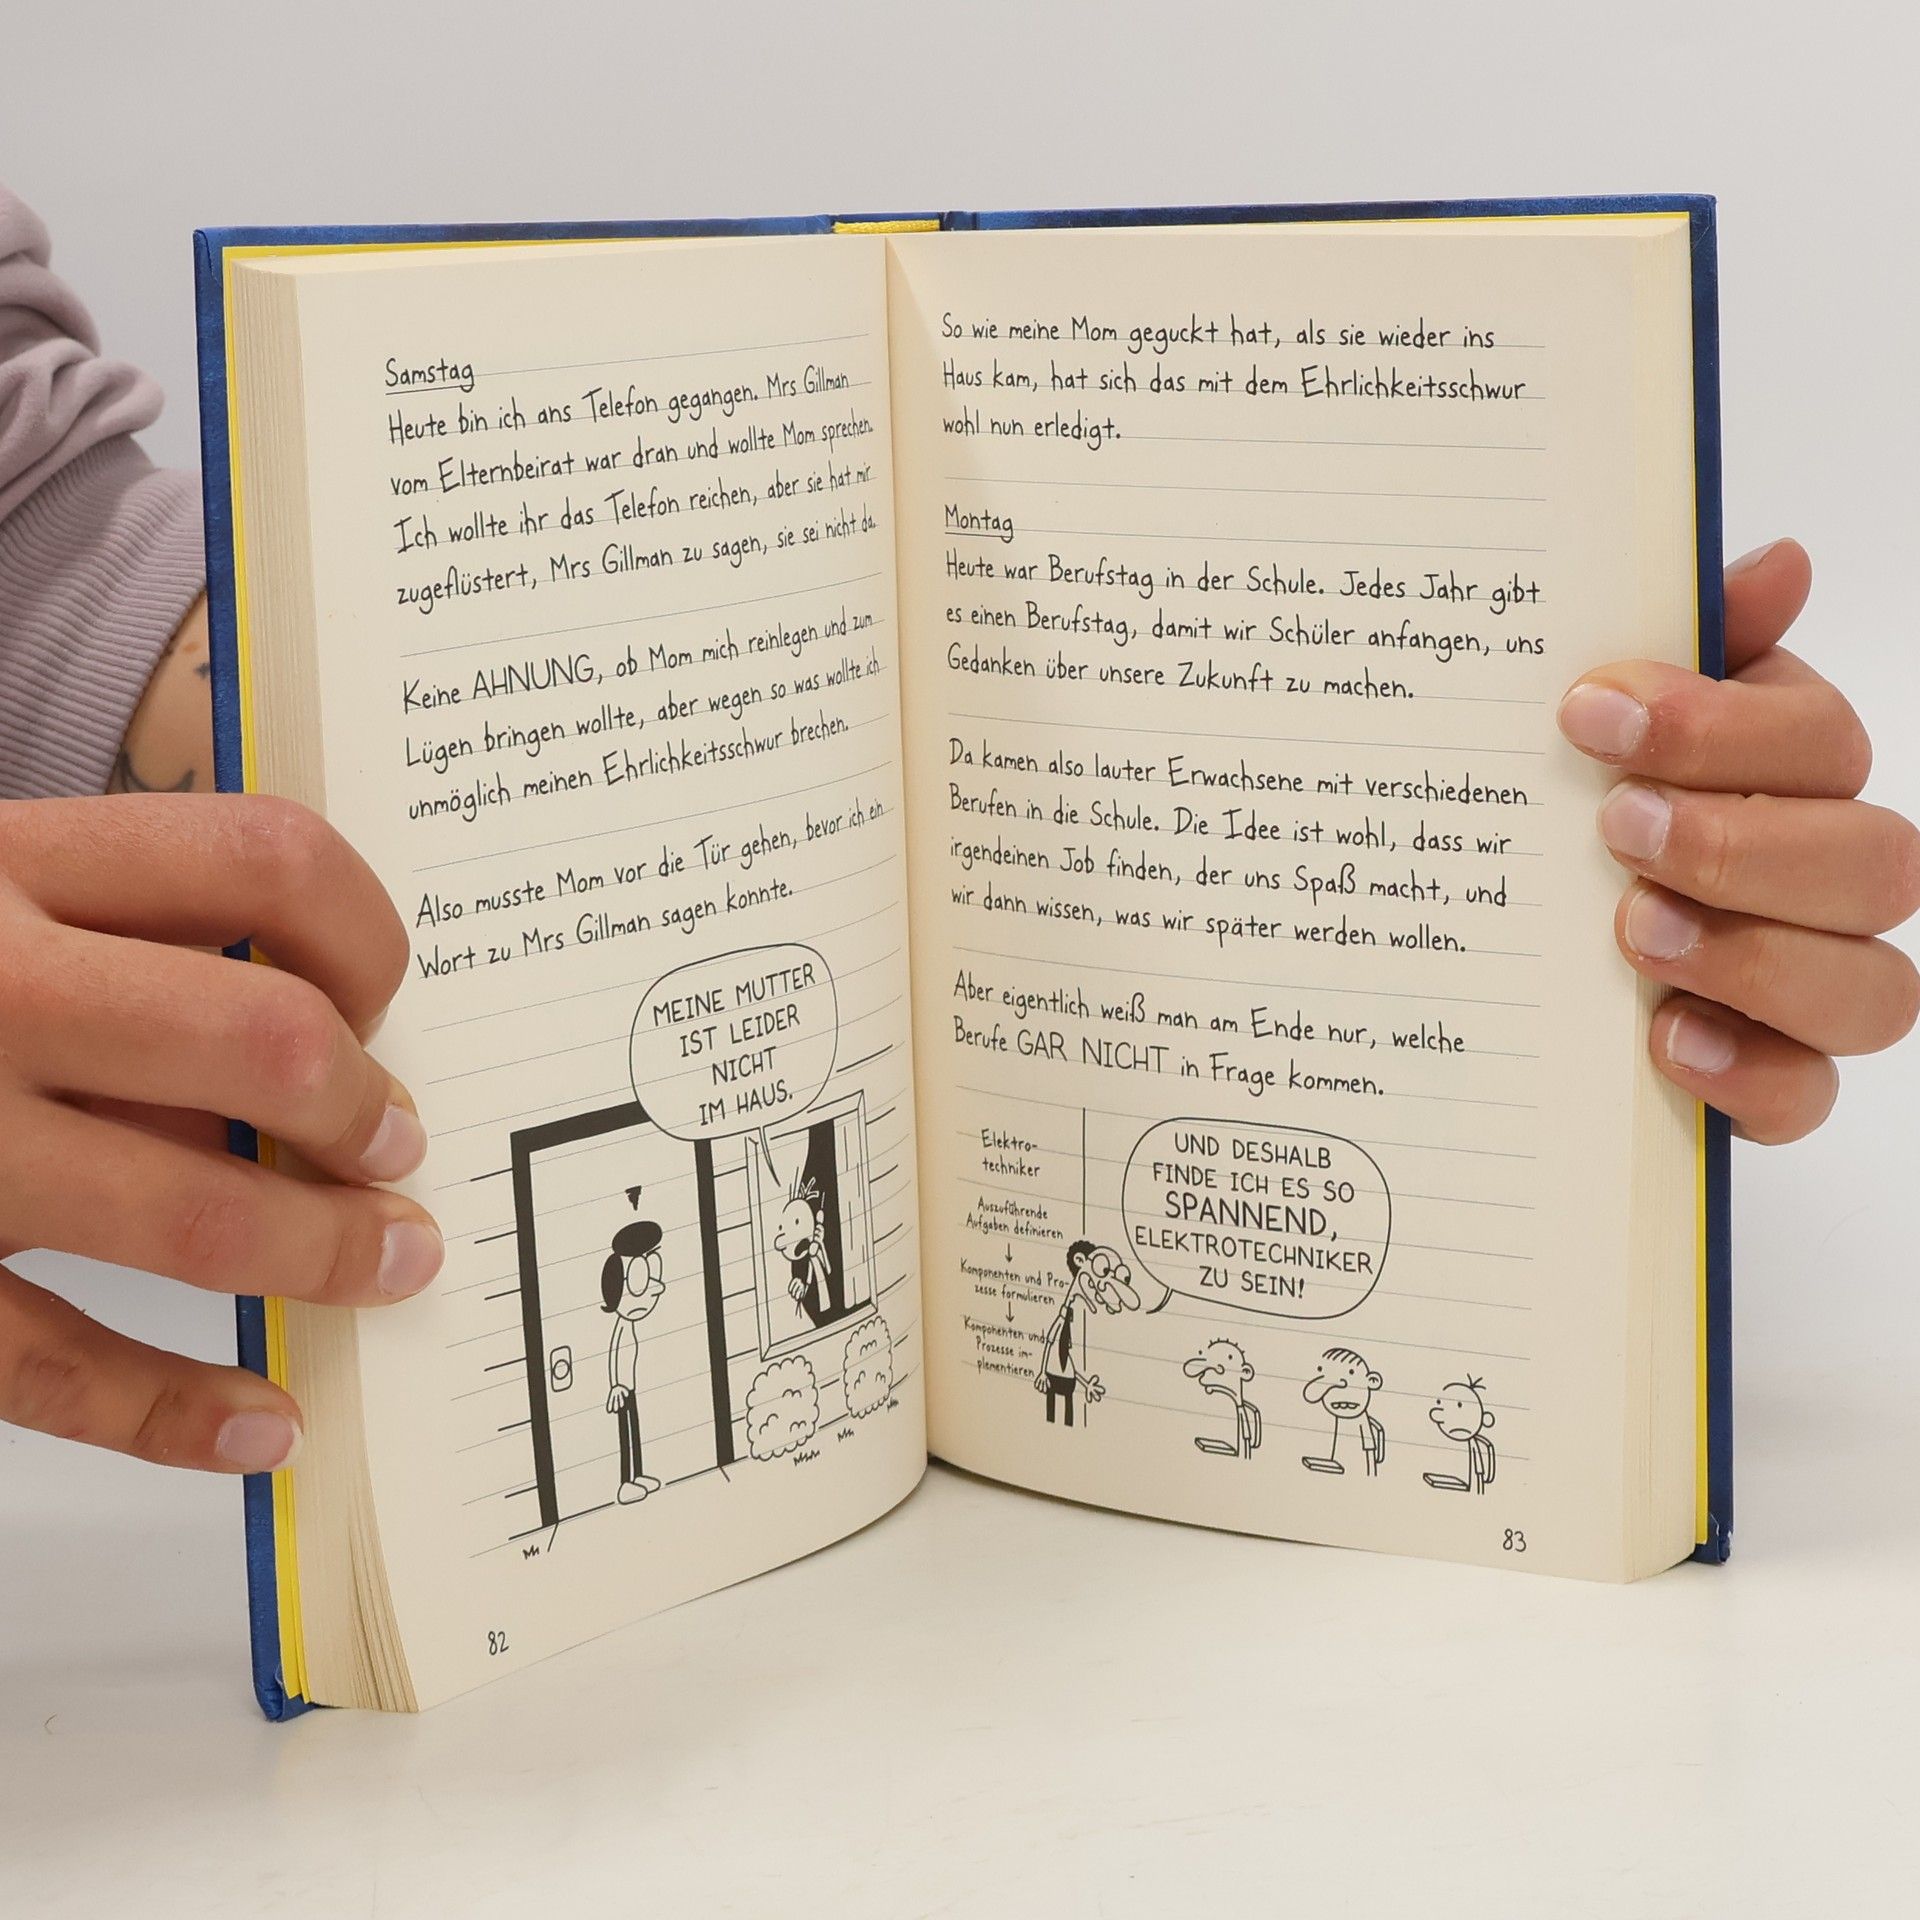 Samstag
Heute bin ich ans Telefon gegangen. Mrs Gillman
vom Elternbeirat war dran und wollte Mom sprechen.
Ich wollte ihr das Telefon reichen, aber sie hat mir
zugeflüstert, Mrs Gillman zu sagen, sie sei nicht da.
Keine AHNUNG, ob Mom mich reinlegen und zum
Lügen bringen wollte, aber wegen so was wollte ich
unmöglich meinen Ehrlichkeitsschwur brechen.
Also musste Mom vor die Tür gehen, bevor ich ein
Wort zu Mrs Gillman sagen konnte.
MEINE MUTTER
IST LEIDER
NICHT
IM HAUS.
82
So wie meine Mom geguckt hat, als sie wieder ins
Haus kam, hat sich das mit dem Ehrlichkeitsschwur
wohl nun erledigt.
Montag
Heute war Berufstag in der Schule. Jedes Jahr gibt
es einen Berufstag, damit wir Schüler anfangen, uns
Gedanken über unsere Zukunft zu machen.
Da kamen also lauter Erwachsene mit verschiedenen
Berufen in die Schule. Die Idee ist wohl, dass wir
irgendeinen Job finden, der uns Spaß macht, und
wir dann wissen, was wir später werden wollen.
Aber eigentlich weiß man am Ende nur, welche
Berufe GAR NICHT in Frage kommen.
Elektro-
techniker
Auszuführende
Aufgaben definieren
Komponenten und Pro-
zesse formulieren
Komponenten und
Prozesse im-
plementieren
UND DESHALB
FINDE ICH ES SO
SPANNEND,
ELEKTROTECHNIKER
ZU SEIN!
83